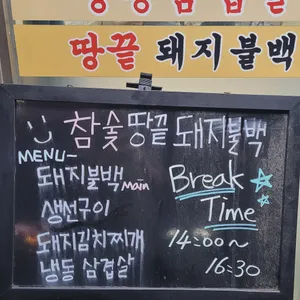 땅끝 돼지불백
참숯 땅끝 돼지불백
MENU~
돼지불백 Main
생선구이
돼지김치찌개
냉동 삼겹살
Break
Time
14:00~
16:30